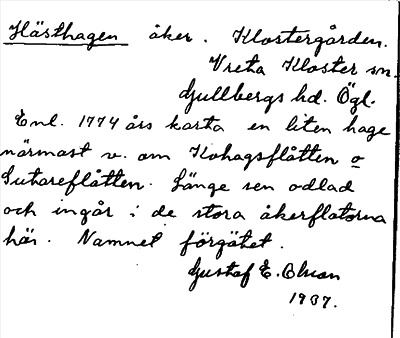 Hästhagen åker. Klostergården.
Vreta Kloster sn.
Gullbergs hd. Ögl.
Enl. 1774 års karta en liten hage
närmast v. om Kohagsflåtten o
Sutareflåtten. Länge sen odlad
och ingår i de stora åkerflatorna
här. Namnet förgätet.
Gustaf E. Olson
1937.